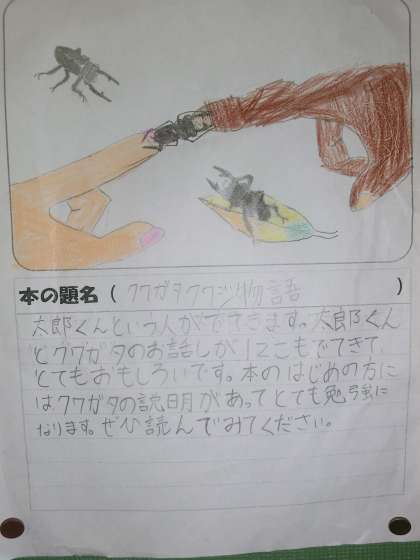 本の題名（クワガタクワジ物語）
太郎くんという人がでてきます。太郎くん
とクワガタのお話しが12こもでてきて、
とてもおもしろいです。本のはじめの方に
はクワガタの説明があってとても勉強に
なります。ぜひ読んでみてください。